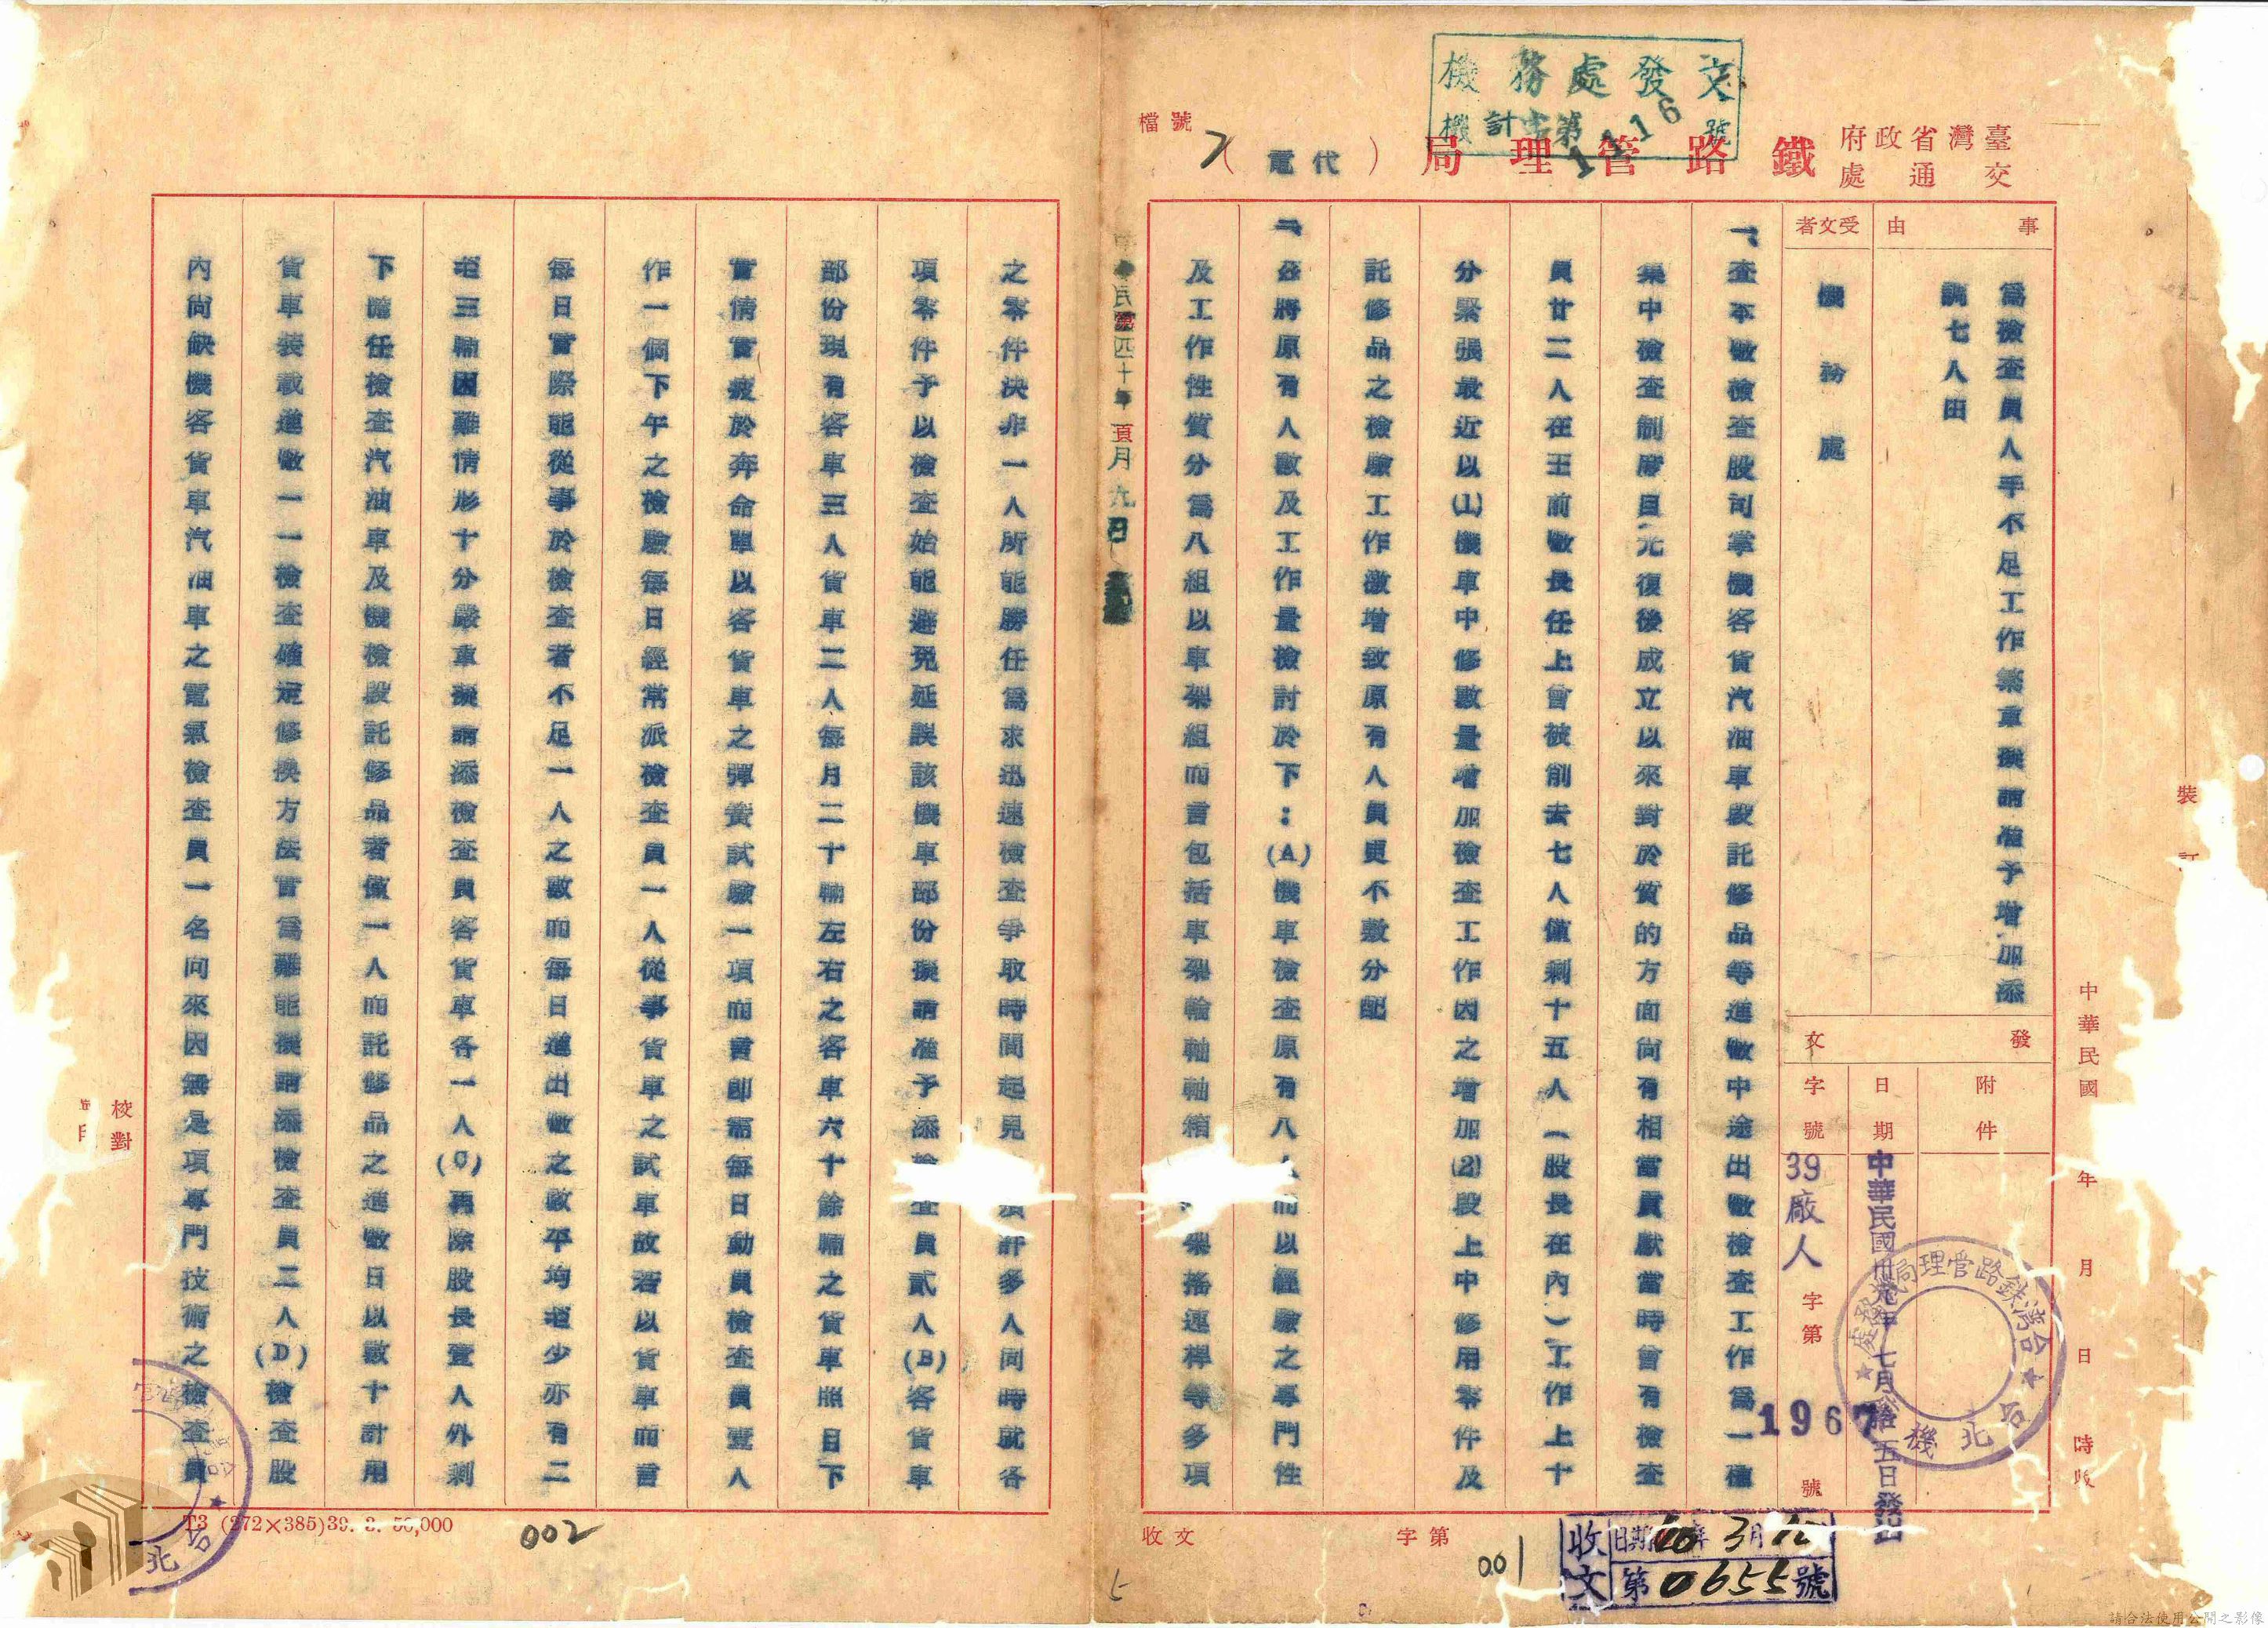 機務處發文
機計字第1116號
檔號
7
臺灣省政府
交通處
鐵路管理局(代電)
事由
為檢查員人手不足工作繁重擬請准予增加添
調七人由
受文者
機務處
發文
附件
日期
中華民國卅九年七月拾五日發出
字號
39廠人字第1967號
台灣鉄路管理局機務處
台北機
一、查本廠檢查股司掌機客貨汽油車段託修品等進廠中途出廠檢查工作為一種
集中檢查制度自光復後成立以來對於質的方面尚有相當貢獻當時曾有檢查
員廿二人在王前廠長任上曾被削去七人僅剩十五人(股長在內)工作上十
分緊張最近以(1)機車中修數量增加檢查工作因之增加(2)段上中修用零件及
託修品之檢驗工作激增致原有人員更不敷分配
二、茲將原有人數及工作量檢討於下:(A)機車檢查原有八人而以經驗之專門性
及工作性質分為八組以車架組而言包括車架輪軸軸箱架搖連桿等多項
中華民國四十年貳月九日
之零件決非一人所能勝任為求迅速檢查爭取時間起見須許多人同時就各
項零件予以檢查始能避免延誤該機車部份擬請准予添檢查員貳人(B)客貨車
部份現有客車三人貨車二人每月二十輛左右之客車六十餘輛之貨車照目下
實情實疲於奔命單以客貨車之彈簧試驗一項而言即需每日動員檢查員壹人
作一個下午之檢驗每日經常派檢查員一人從事貨車之試車故若以貨車而言
每日實際能從事於檢查者不足一人之數而每日進出廠之數平均至少亦有二
至三輛困難情形十分嚴重擬請添檢查員客貨車各一人(C)再除股長壹人外剩
下擔任檢查汽油車及機檢段託修品者僅一人而託修品之進廠日以數十計用
貨車裝載進廠一一檢查確定修換方法實為難能擬請添檢查員二人(D)檢查股
內尚缺機客貨車汽油車之電氣檢查員一名向來因無是項專門技術之檢查員
裝
訂
中華民國 年 月 日 時收
校對
T3 (272×385)39. 3. 50,000
002
收文 字第
001
收文
日期40年3月12
第0655號
台北
請合法使用公開之影像